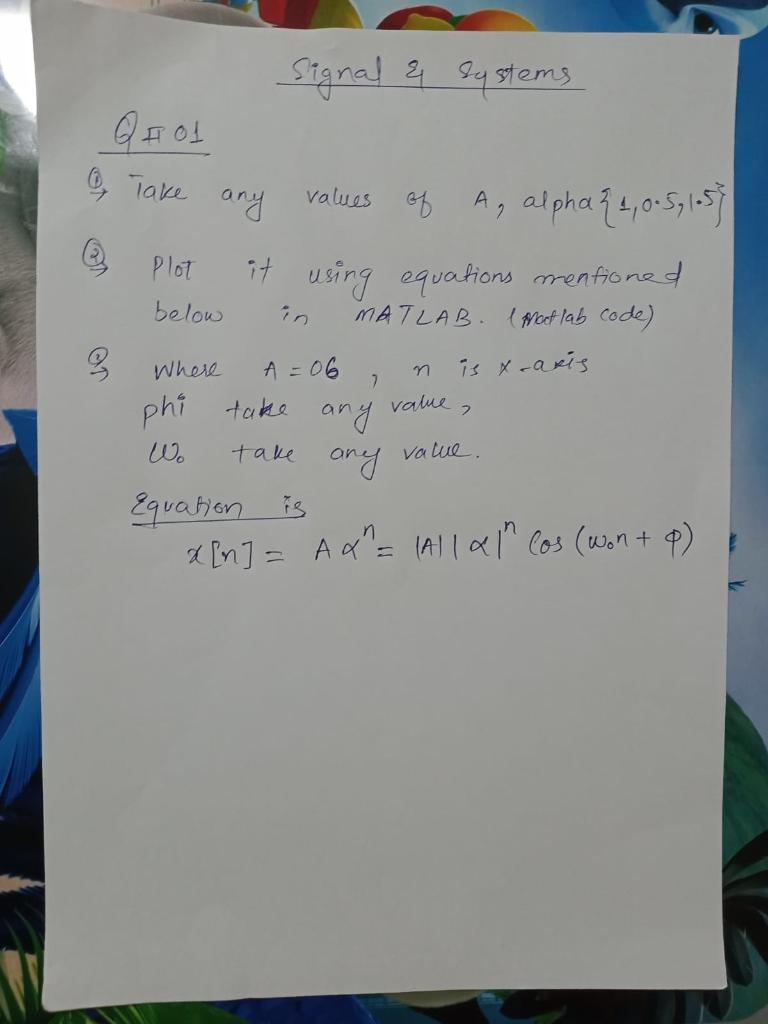 Signal & Systems
Q # 01
① Take any values of A, alpha {1,0.5,1.5}
② Plot it using equations mentioned
below in MATLAB. (Matlab code)
③ Where A = 06 , n is x-axis
phi take any value,
Wo take any value.
Equation is
x[n] = Aαⁿ = |A||α|ⁿ Cos(ω₀n + φ)